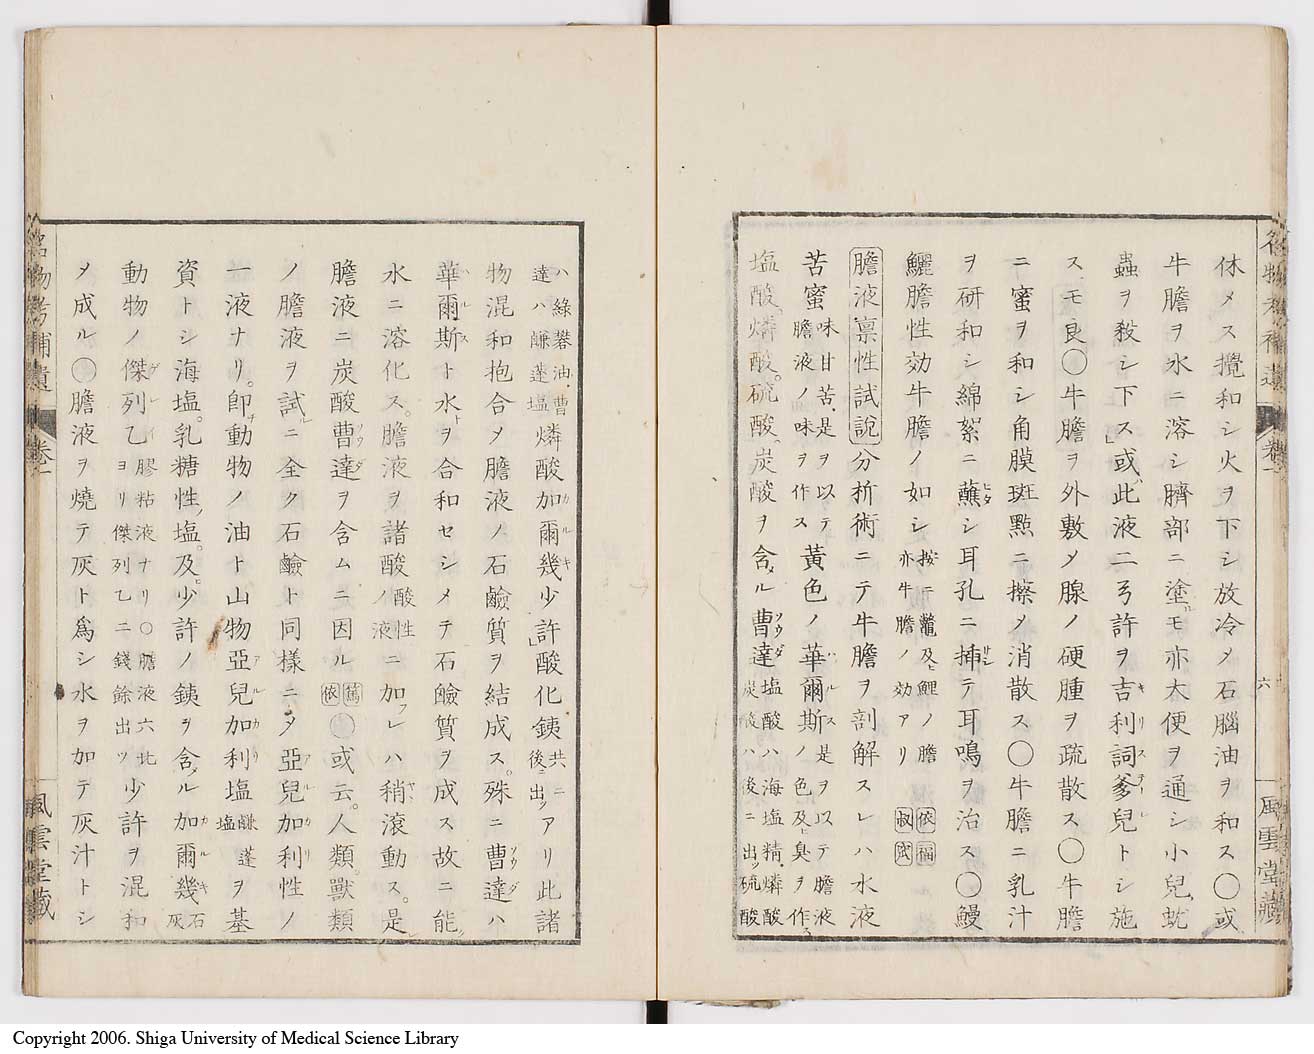 名物考補遺 卷一 六 風雲堂藏
休メス攪和シ火ヲ下シ放冷メ石腦油ヲ和ス〇或
牛膽ヲ水ニ溶シ臍部ニ塗ルモ亦大便ヲ通シ小兒ノ蚘
蟲ヲ殺シ下ス」或ハ此液二弓許ヲ吉利詞爹兒トシ施
スモ良〇牛膽ヲ外敷メ腺ノ硬腫ヲ疏散ス〇牛膽
ニ蜜ヲ和シ角膜斑點ニ擦メ消散ス〇牛膽ニ乳汁
ヲ研和シ綿絮ニ蘸シ耳孔ニ挿テ耳鳴ヲ治ス〇鰻
鱺膽性効牛膽ノ如シ按ニ鼈及ヒ鯉ノ膽亦牛膽ノ効アリ 依福叔武
膽液禀性試説 分析術ニテ牛膽ヲ剖解スレハ水液
苦蜜味甘苦是ヲ以テ膽液ノ味ヲ作ス黃色ノ華爾斯是ヲ以テ膽液ノ色及ヒ臭ヲ作ル
塩酸「燐酸。硫酸「炭酸ヲ含メル曹達塩酸ハ海塩精燐酸炭酸ハ後ニ出ツ硫酸
ハ綠礬油曹達ハ鹻蓬塩燐酸加爾幾少許」酸化銕共ニ後ニ出ツアリ此諸
物混和抱合メ膽液ノ石鹼質ヲ結成ス。殊ニ曹達ハ
華爾斯ト水トヲ合和セシメテ石鹼質ヲ成ス故ニ能ク
水ニ溶化ス。膽液ヲ諸酸酸性ノ液ニ加フレハ稍滾動ス。是レ
膽液ニ炭酸曹達ヲ含ムニ因ル 篤依〇或云。人類。獸類
ノ膽液ヲ試ルニ全ク石鹼ト同様ニメ亞兒加利性ノ
一液ナリ。卽チ動物ノ油ト山物亞兒加利塩鹻蓬塩ヲ基
資トシ海塩。乳糖性ノ塩。及ヒ少許ノ銕ヲ含メル加爾幾石灰
動物ノ傑列乙膠粘液ナリ〇膽液六比ヨリ傑列乙二錢餘出ツ少許ヲ混和
メ成ル〇膽液ヲ燒テ灰ト爲シ水ヲ加テ灰汁トシ
名物考補遺 卷一 風雲堂藏
Copyright 2006. Shiga University of Medical Science Library